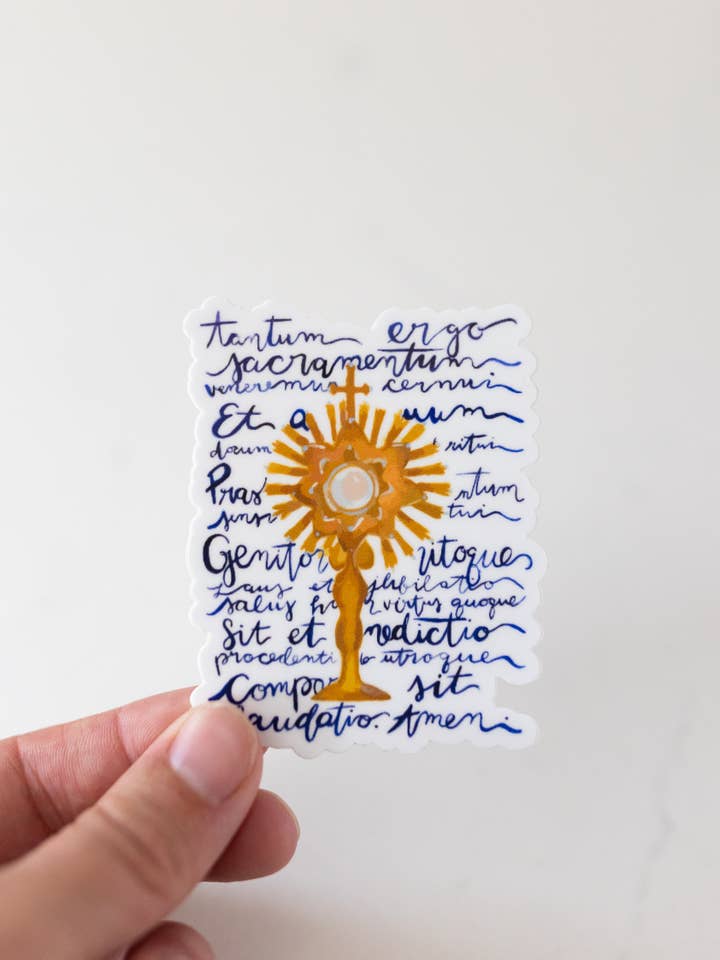 tantum ergo
sacramentum
veneremur cernui
Et a uum
docum ritui
Pras ntum
sensu tui
Genitor itoque
Laus et jubilatio
salus h virtus quoque
Sit et nedictio
procedenti b utroque
Compar sit
laudatio. Amen.